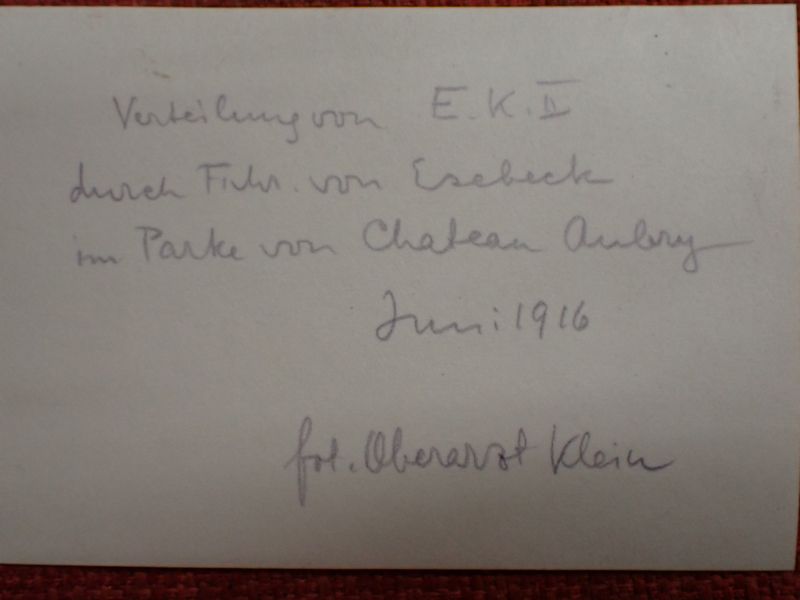 Verteilung von E.K.II
durch Frhr. von Esebeck
im Parke von Chateau Aubry
Juni 1916
fot. Oberarzt Klein